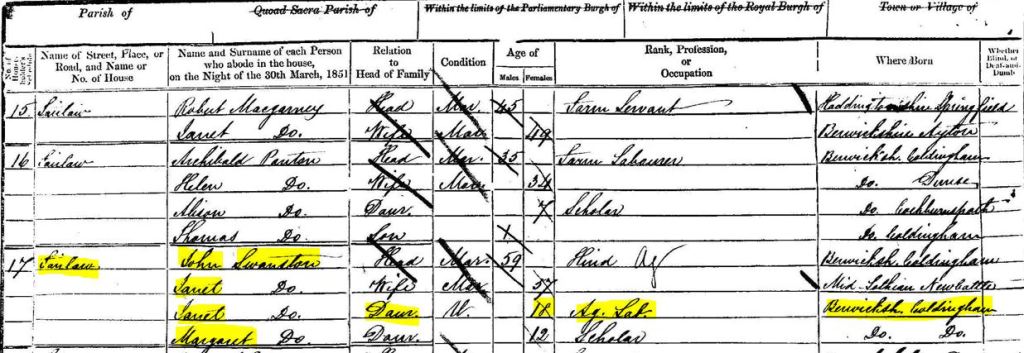 Parish of Quoad Sacra Parish of Within the limits of the Parliamentary Burgh of Within the limits of the Royal Burgh of Town or Village of
No. of House-holder's Schedule Name of Street, Place, or Road, and Name or No. of House Name and Surname of each Person who abode in the house, on the Night of the 30th March, 1851 Relation to Head of Family Condition Age of Males Females Rank, Profession, or Occupation Where Born Whether Blind, or Deaf-and-Dumb
15 Fairlaw Robert Macgarney Head Mar. 45 Farm Servant Haddingtonshire Springfield
Janet Do. Wife Mar. 49 Berwickshire Ayton
16 Fairlaw Archibald Panton Head Mar. 35 Farm Labourer Berwicksh. Coldingham
Helen Do. Wife Mar. 34 Do. Dunse
Alison Do. Daur. 7 Scholar Do. Cockburnspath
Thomas Do. Son Do. Coldingham
17 Fairlaw John Swanston Head Mar. 59 Hind Ag Berwicksh. Coldingham
Janet Do. Wife Mar. 57 Mid Lothian Newbattle
Janet Do. Daur. U. 18 Ag. Lab Berwicksh. Coldingham
Margaret Do. Daur. 12 Scholar Do. Do.